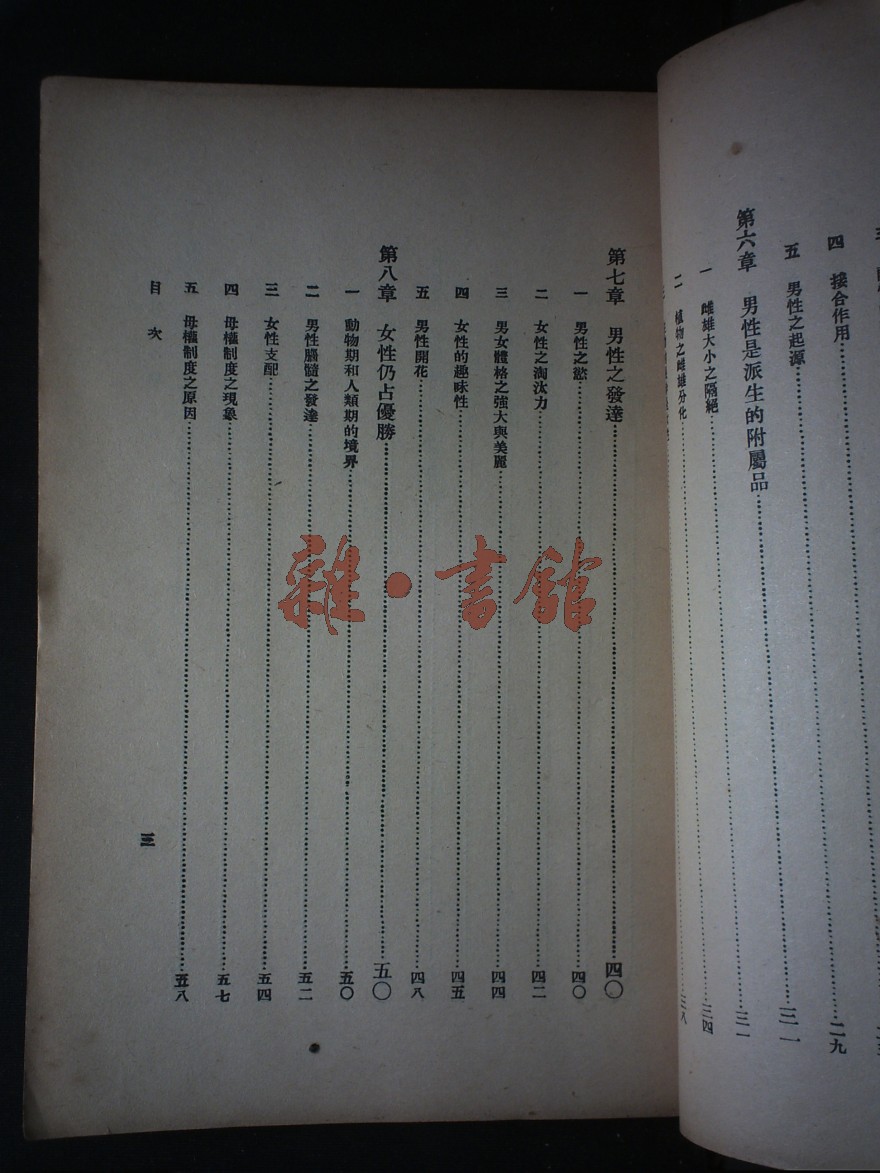 四 接合作用……二九
五 男性之起源……三一
第六章 男性是派生的附屬品……三一
一 雌雄大小之隔絕……三四
二 植物之雌雄分化……三八
第七章 男性之發達……四〇
一 男性之慾……四〇
二 女性之淘汰力……四二
三 男女體格之強大與美麗……四四
四 女性的趣味性……四五
五 男性開花……四八
第八章 女性仍占優勝……五〇
一 動物期和人類期的境界……五〇
二 男性腦髓之發達……五二
三 女性支配……五四
四 母權制度之現象……五七
五 母權制度之原因……五八
目次
三
雜·書館